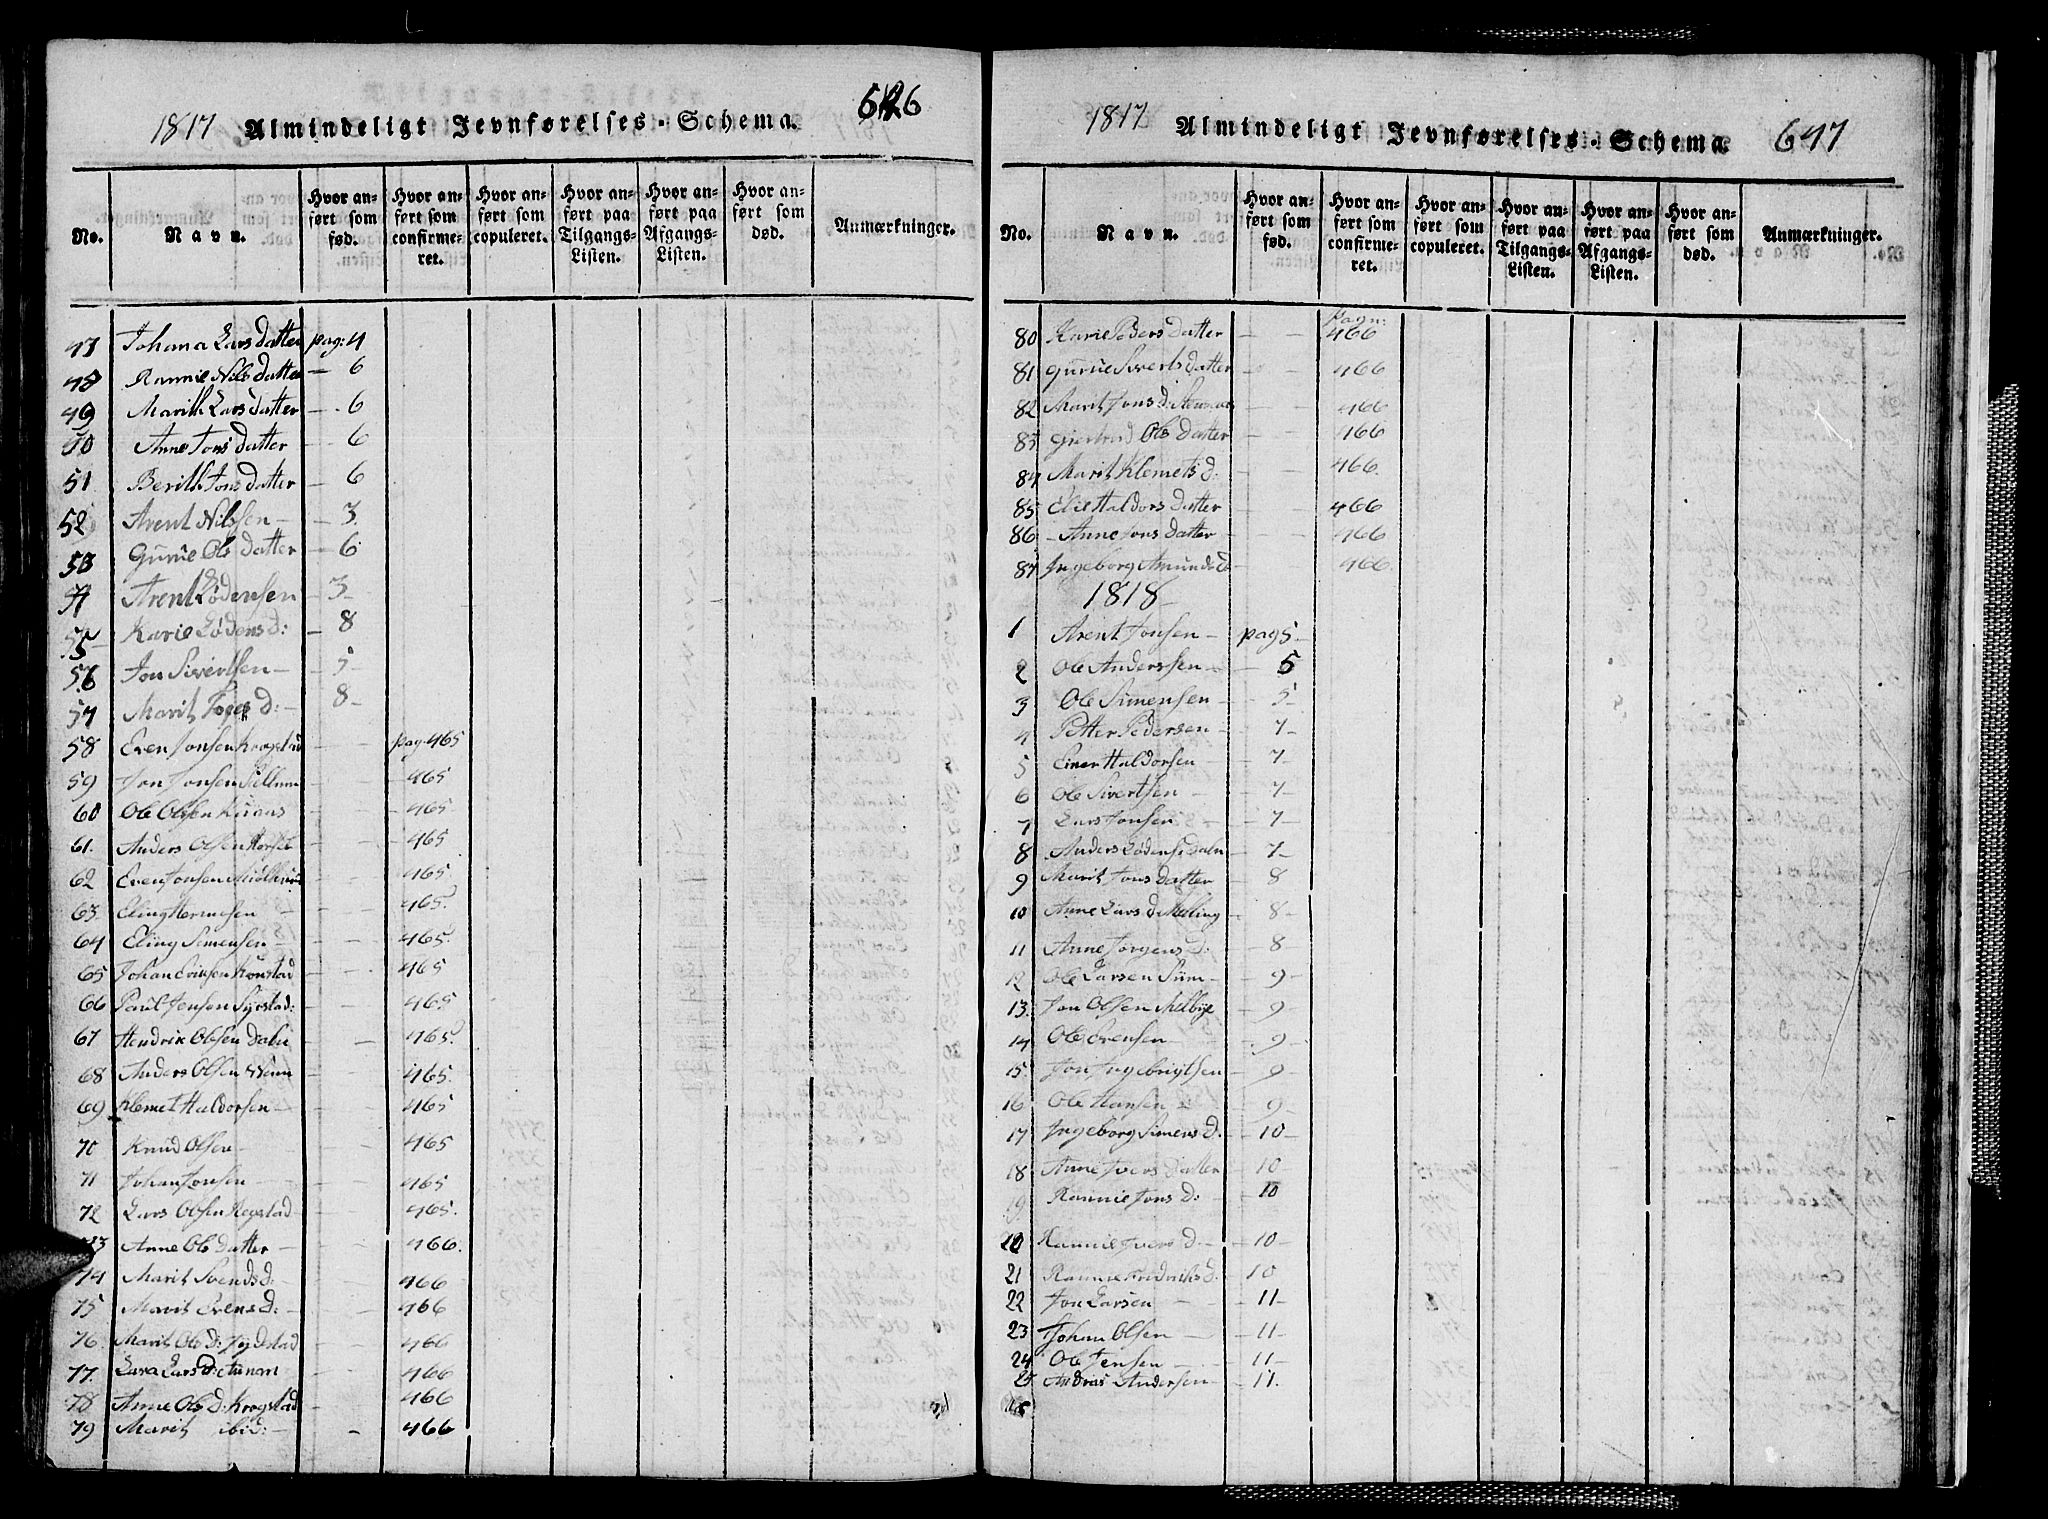 1817 Almindeligt Jevnførelses-Schema. 646
No.
Navn.
Hvor anført som fød.
Hvor anført som confirmeret.
Hvor anført som copuleret.
Hvor anført paa Tilgangs-Listen.
Hvor anført paa Afgangs-Listen.
Hvor anført som død.
Anmærkninger.
47 Johana Lars datter pag: 4
48 Rannie Nils datter — 6
49 Marith Lars datter — 6
50 Anne Jons datter — 6
51 Berith Jons datter — 6
52 Arent Nilssen — 3.
53 Gurue Ols datter — 6
54 Arent Lødensen — 3
55 Karie Lødens d: — 8
56 Jon Sivertsen — 5
57 Marit d: — 8
58 Even Jonsen Krogstad pag: 465
59 Jon Jonsen 465
60 Ole Olsen 465
61. Anders Olsen 465
62 Even Jonsen 465
63. Eling 465
64 Eling Simensen 465
65 Johan 465
66 Paul Jensen 465
67 Hendrik Olsen Daln 465
68 Anders Olsen 465
69 Klemet Haldorsen 465
70 Knud Olsen 465
71 Johan Jonsen 465
72 Lars Olsen 465
73 Anne Ols datter 466
74 Marit Svends d: 466
75 Marit Evens d: 466
76. Marit Ols d: 466
77. Lars d: 466
78 Anne Ols d: Krogstad 466
79 Marit ibid: 466
1817 Almindeligt Jevnførelses-Schema. 647
No.
Navn.
Hvor anført som fød.
Hvor anført som confirmeret.
Hvor anført som copuleret.
Hvor anført paa Tilgangs-Listen.
Hvor anført paa Afgangs-Listen.
Hvor anført som død.
Anmærkninger.
80 Karie Peders datter 466
81 Gurue Siverts datter 466
82 Marit Jons d: 466
83 Giertrud Ols datter 466
84 Marit Klemets d: 466
85 Elie Haldors datter 466
86 Anne Jons datter 466
87 Ingeborg Amunds d 466
1818
1 Arent Jonsen — pag 5
2 Ole Anderssen — 5
3 Ole Simensen — 5
4 Petter Pedersen — 7
5 Einer Haldorsen — 7
6 Ole Sivertsen — 7
7 Lars Jonsen — 7
8 Anders Lødens: Daln — 7
9 Marit Jons datter — 8
10 Anne Lars d: — 8
11 Anne Jorgens d: — 8
12 Ole Larsen — 9
13. Jon Olsen Melbye — 9
14 Ole Evensen — 9
15 Jon Ingebrigtsen — 9
16 Ole Hansen — 9
17 Ingeborg Simens d. — 10
18 Anne Ivers datter — 10
19 Rannie Jons d: — 10
20 Rannie Ivers d — 10
21 Rannie Fredriks d: 10
22 Jon Larsen — 11
23 Johan Olsen — 11
24 Ole Jensen — 11
25 Andersen — 11.